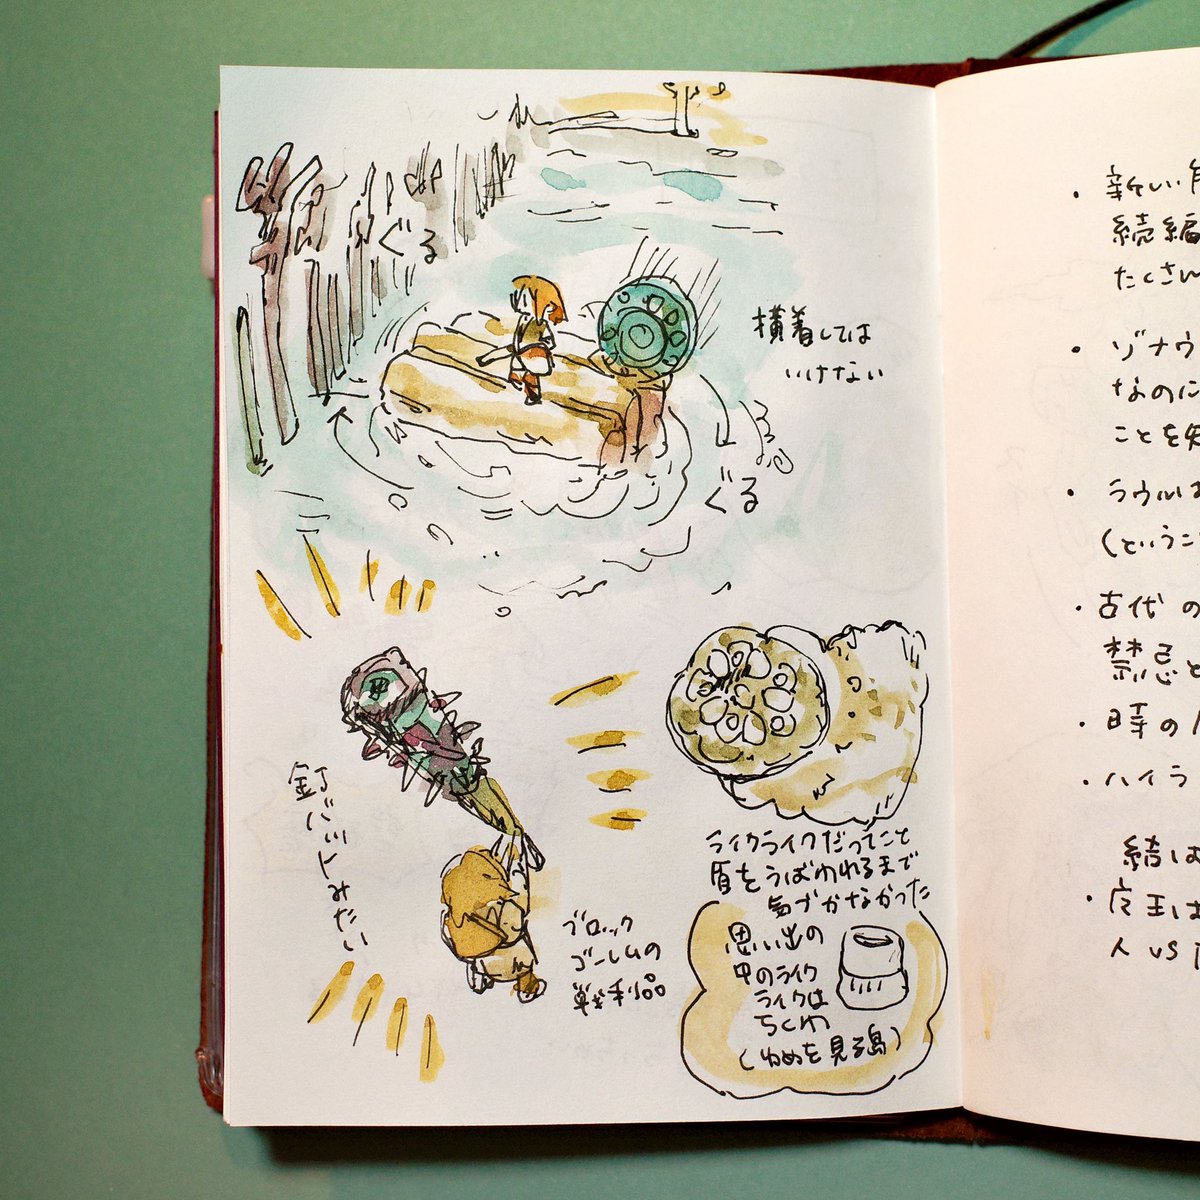 ぐる
横着しては
いけない
ぐる
釘バットみたい
ブロック
ゴーレムの
戦利品
ライクライクだってこと
盾をうばわれるまで
気づかなかった
思い出の
中のライク
ライクは
ちくわ
(ゆめを見る島)
・新しい
続編
たくさん
・ゾナウ
なのに
ことを知
・ラウルは
(というこ
・古代の
禁忌と
・時の
・ハイラ
結は
・魔王は
人 vs